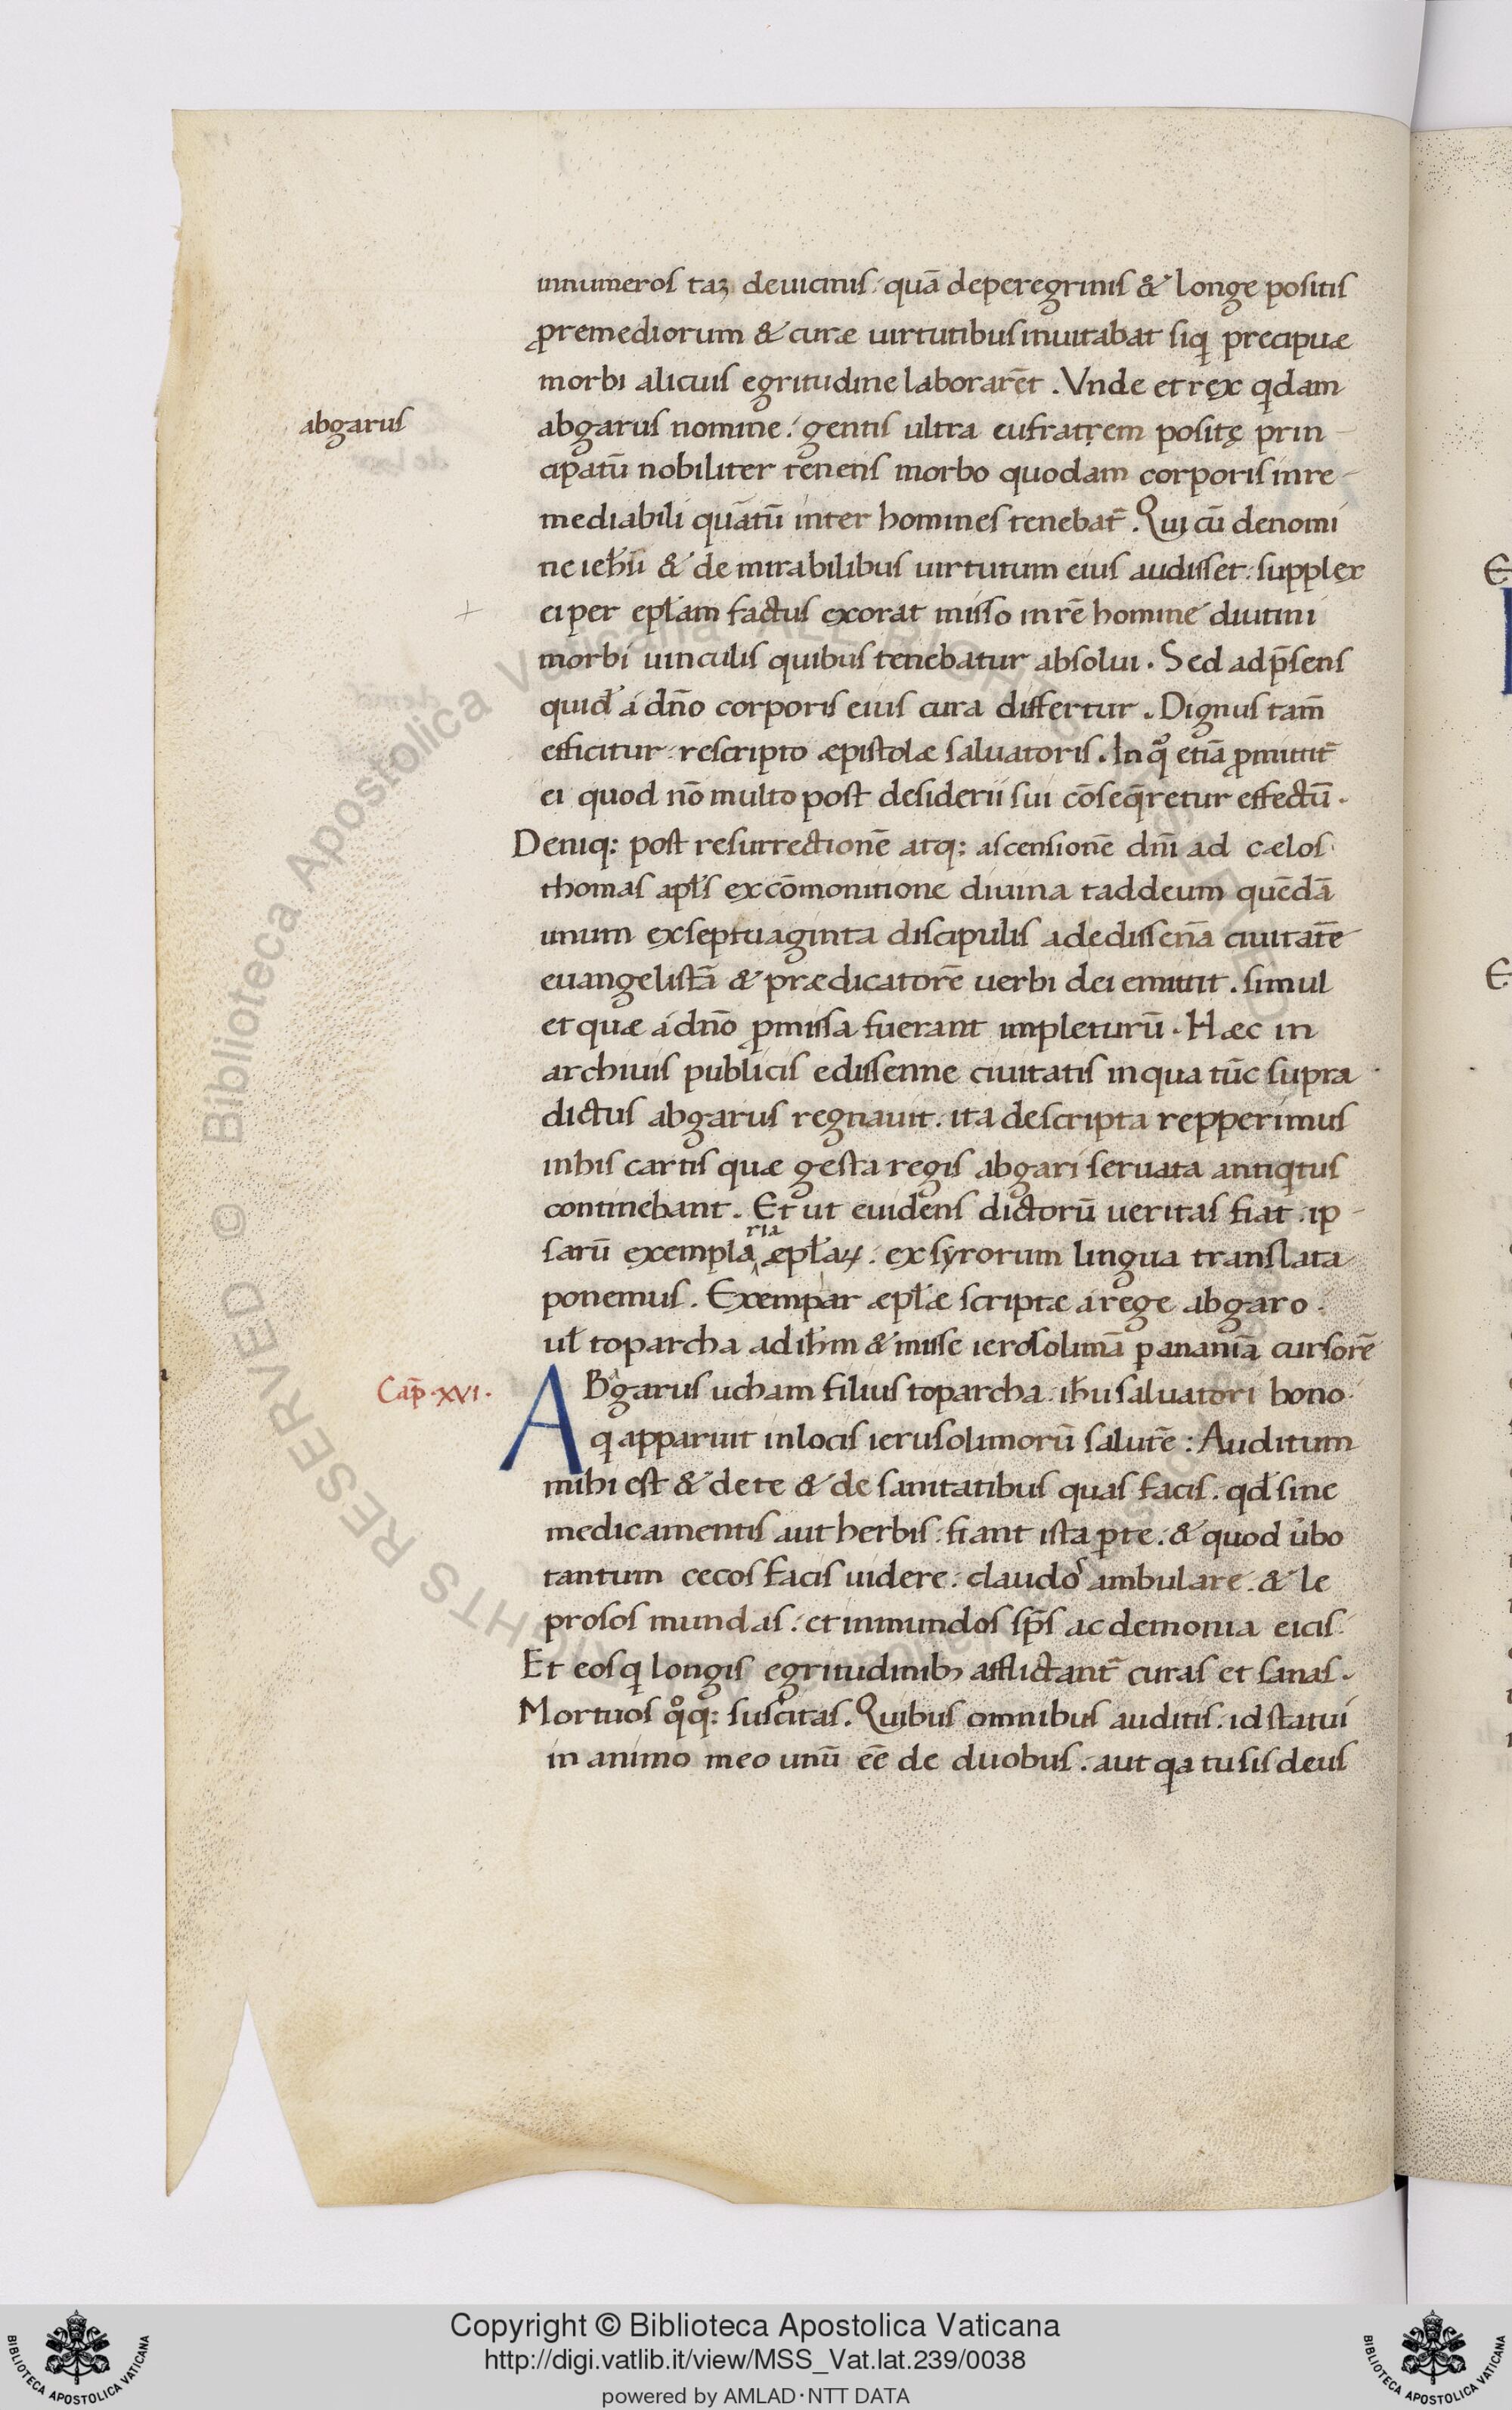 innumeros taʒ deuicinis. quā deperegrinis & longe positis
ꝓremediorum & curæ uirtutibusinuitabat siqͥ precipuæ
morbi alicuis egritudine laborarēt. Vnde et rex qͥdam
abgarus
abgarus nomine. gentis ultra eufratrem positę prin
cipatū nobiliter tenens morbo quodam corporis inre-
mediabili quātū inter homines tenebat᷑. Qui cū denomi
ne ieħu & de mirabilibus uirtutum eius audisset: supplex
ei per epłam factus exorat misso inrē homine diutini
morbi uinculis quibus tenebatur absolui. Sed adp̄sens
quid᷑ a dn̄o corporis eius cura differtur. Dignus tam̄
efficitur rescripto æpistolæ saluatoris. In qͦ etiā ꝓmittit᷑
ei quod nō multo post desiderii sui cōseq̄retur effectū.
Deniq: post resurrectionē atq: ascensionē dn̄i ad cælos
thomas apłs ex cōmonitione diuina taddeum quēdā
unum exseptuaginta discipulis adedissenā ciuitatē
euangelistā & prædicatorē uerbi dei emittit. simul
et quæ a dn̄o ꝓmissa fuerant impleturū. Hæc in
archiuis publicis edissenne ciuitatis inqua tūc supra
dictus abgarus regnauit. ita descripta repperimus
inhis cartis quæ gesta regis abgari seruata antiqͥtus
continebant. Et ut euidens dictorū ueritas fiat. ip-
ria
sarū exempla æpłaꝝ. ex syrorum lingua translata
ponemus. Exemp̍ar æpłæ scriptæ a rege abgaro.
uł toparcha ad iħm & misse ierosolimā ꝑ ananiā cursorē
Cap̄. XVI.
ABgarus ucham filius toparcha. iħu saluatori bono
qͥ apparuit inlocis ierusolimorū salutē: Auditum
mihi est & de te & de sanitatibus quas facis. qd᷑ sine
medicamentis aut herbis. fiant ista ꝑte. & quod u̍bo
tantum cecos facis uidere. claudos ambulare. & le
prosos mundas. et inmundos sp̄s ac demonia eicis.
Et eos qͥ longis egritudinibꝫ afflictant᷑ curas et sanas.
Mortuos qͦq: suscitas. Quibus omnibus auditis. id statui
in animo meo unū eē de duobus. aut qͥa tu sis deus
Copyright © Biblioteca Apostolica Vaticana
http://digi.vatlib.it/view/MSS_Vat.lat.239/0038
powered by AMLAD·NTT DATA
BIBLIOTECA APOSTOLICA VATICANA
BIBLIOTECA APOSTOLICA VATICANA